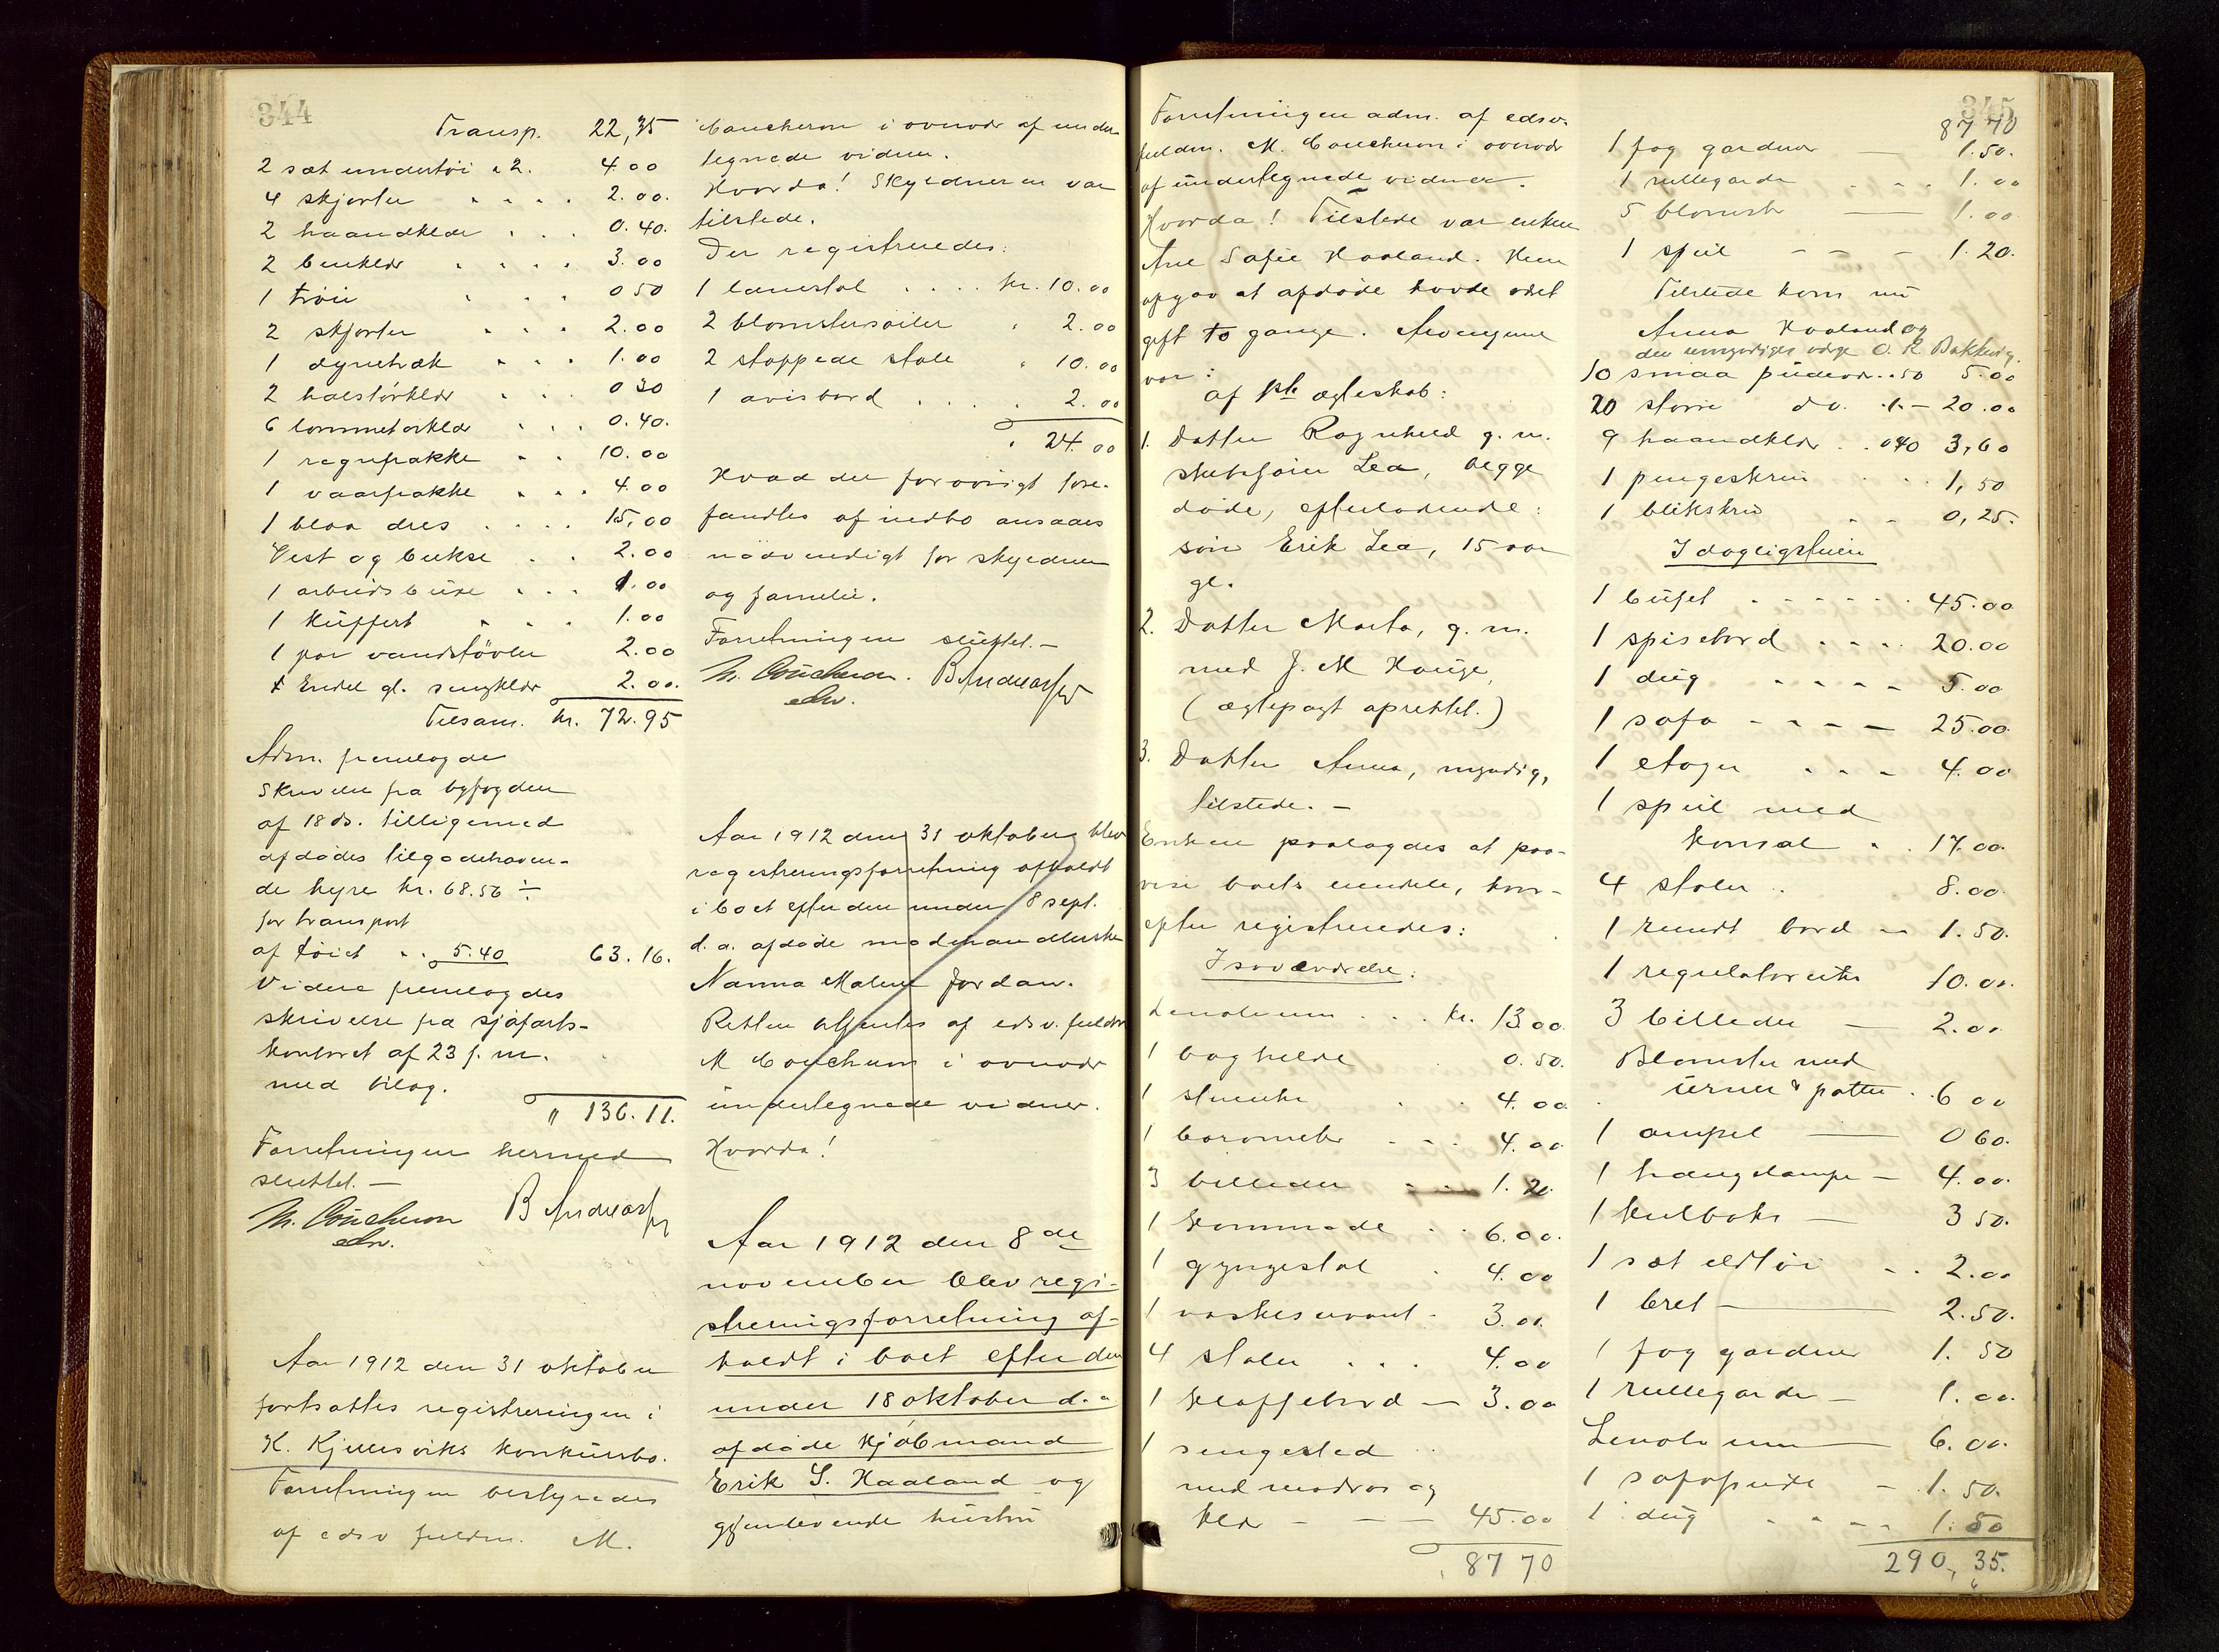 344
Transp. 22,35
2 sæt undertøi a 2. 4.00
4 skjorter 2.00.
2 haandklæder 0.40.
2 benklær 3.00
1 trøie 0 50
2 skjorter 2.00
1 dynetræk 1.00
2 halstørklær 0 30
6 lommetørklær 0.40.
1 regnfrakke 10.00
1 vaarfrakke 4.00
1 blaa dres 15,00
Vest og bukse 2.00
1 arbeidsbuxe 1.00
1 kuffert 1.00
1 par vandstøvler 2.00
Endel gl. sengklær 2.00.
Tilsam. kr. 72.95
Adm. fremlagde
skrivelse fra byfogden
af 18 ds. tilligemed
afdødes tilgodehaven-
de hyre kr. 68.56 ÷
for transport
af tøiet 5.40 63.16.
Videre fremlagdes
skrivelse fra sjøfarts-
kontoret af 23 f. m.
med bilag.
" 136.11.
Forretningen hermed
sluttet. —
M. Coucheron B Andreassen
edsv.
Aar 1912 den 31 oktober
fortsattes registreringen i
K. Kjellesviks konkursbo.
Forretningen bestyredes
af edsv fuldm. M.
Coucheron i overvær af under-
tegnede vidner.
Hvorda! Skyldneren var
tilstede.
Der registreredes:
1 lænestol kr. 10.00
2 blomstersøiler 2.00
2 stoppede stole 10.00
1 avisbord 2.00
24.00
Hvad der forøvrigt fore-
fandtes af indbo ansaaes
nødvendigt for skyldneren
og familie.
Forretningen sluttet. —
M. Coucheron. B Andreassen
edsv.
Aar 1912 den 31 oktober blev
registreringsforretning afholdt
i boet efter den under 8 sept.
d. a. afdøde modehandlerske
Nanna Malene Jordan.
Retten betjentes af edsv. fuldm
M Coucheron i overvær
undertegnede vidner.
Hvorda!
Aar 1912 den 8de
november blev regi-
streringsforretning af-
holdt i boet efter den
under 18 oktober d. a
afdøde kjøbmand
Erik S. Haaland og
gjenlevende hustru
345
Forretningen adm. af edsv.
fuldm. M. Coucheron i overvær
af undertegnede vidner.
Hvorda! Tilstede var enken
Ane Sofie Haaland. Hun
opgav at afdøde havde været
gift to gange. Arvingerne
var:
af 1ste ægteskab:
1. Datter Ragnhild g. m.
Lea, begge
døde, efterladende:
søn Erik Lea, 15 aar
gl.
2. Datter Marta, g. m.
med J. M Hauge,
(ægtepagt oprettet.)
3. Datter Anna, myndig,
tilstede. —
Enken paalagdes at paa-
vise boets eiendele, hvor-
efter registreredes:
I soveværelse:
Linoleum kr. 13 00.
1 boghylde 0.50.
1 stueuhr 4.00
1 barometer 4.00
3 billeder 1.20.
1 kommode 6.00.
1 gyngestol 4.00
1 vaskeservant 3.00.
4 stoler 4.00
1 klaffebord — 3.00
1 sengested
med madras og
klær 45.00
87 70
87 70
1 fag gardiner 1.50.
1 rullegardin 1.00
5 blomster 1.00
1 speil 1.20.
Tilstede kom nu
Anna Haaland og
den umyndiges værge O. K. Bakkevig.
10 smaa puder . 50 5.00
20 større do. . 1.— 20.00
9 haandklær . 0 40 3,60
1 pengeskrin 1,50
1 blikskrin 0,25.
I dagligstuen
1 bufet 45.00
1 spisebord 20.00
1 dug 5.00
1 sofa 25.00.
1 etager 4.00
1 speil med
konsol 17.00.
4 stoler 8.00.
1 rundt bord 1.50.
1 regulatoruhr 10.00.
3 billeder — 2.00
Blomster med
urner & potter 6 00
1 ampel — 0 60.
1 hængelampe — 4.00.
1 kulboks — 3 50.
1 sæt ildtøi 2.00
1 bret — 2.50.
1 fag gardiner 1. 50
1 rullegardin — 1.00.
Linoleum — 6.00.
1 sofapude — 1.50.
1 dug 1.50
290,35.